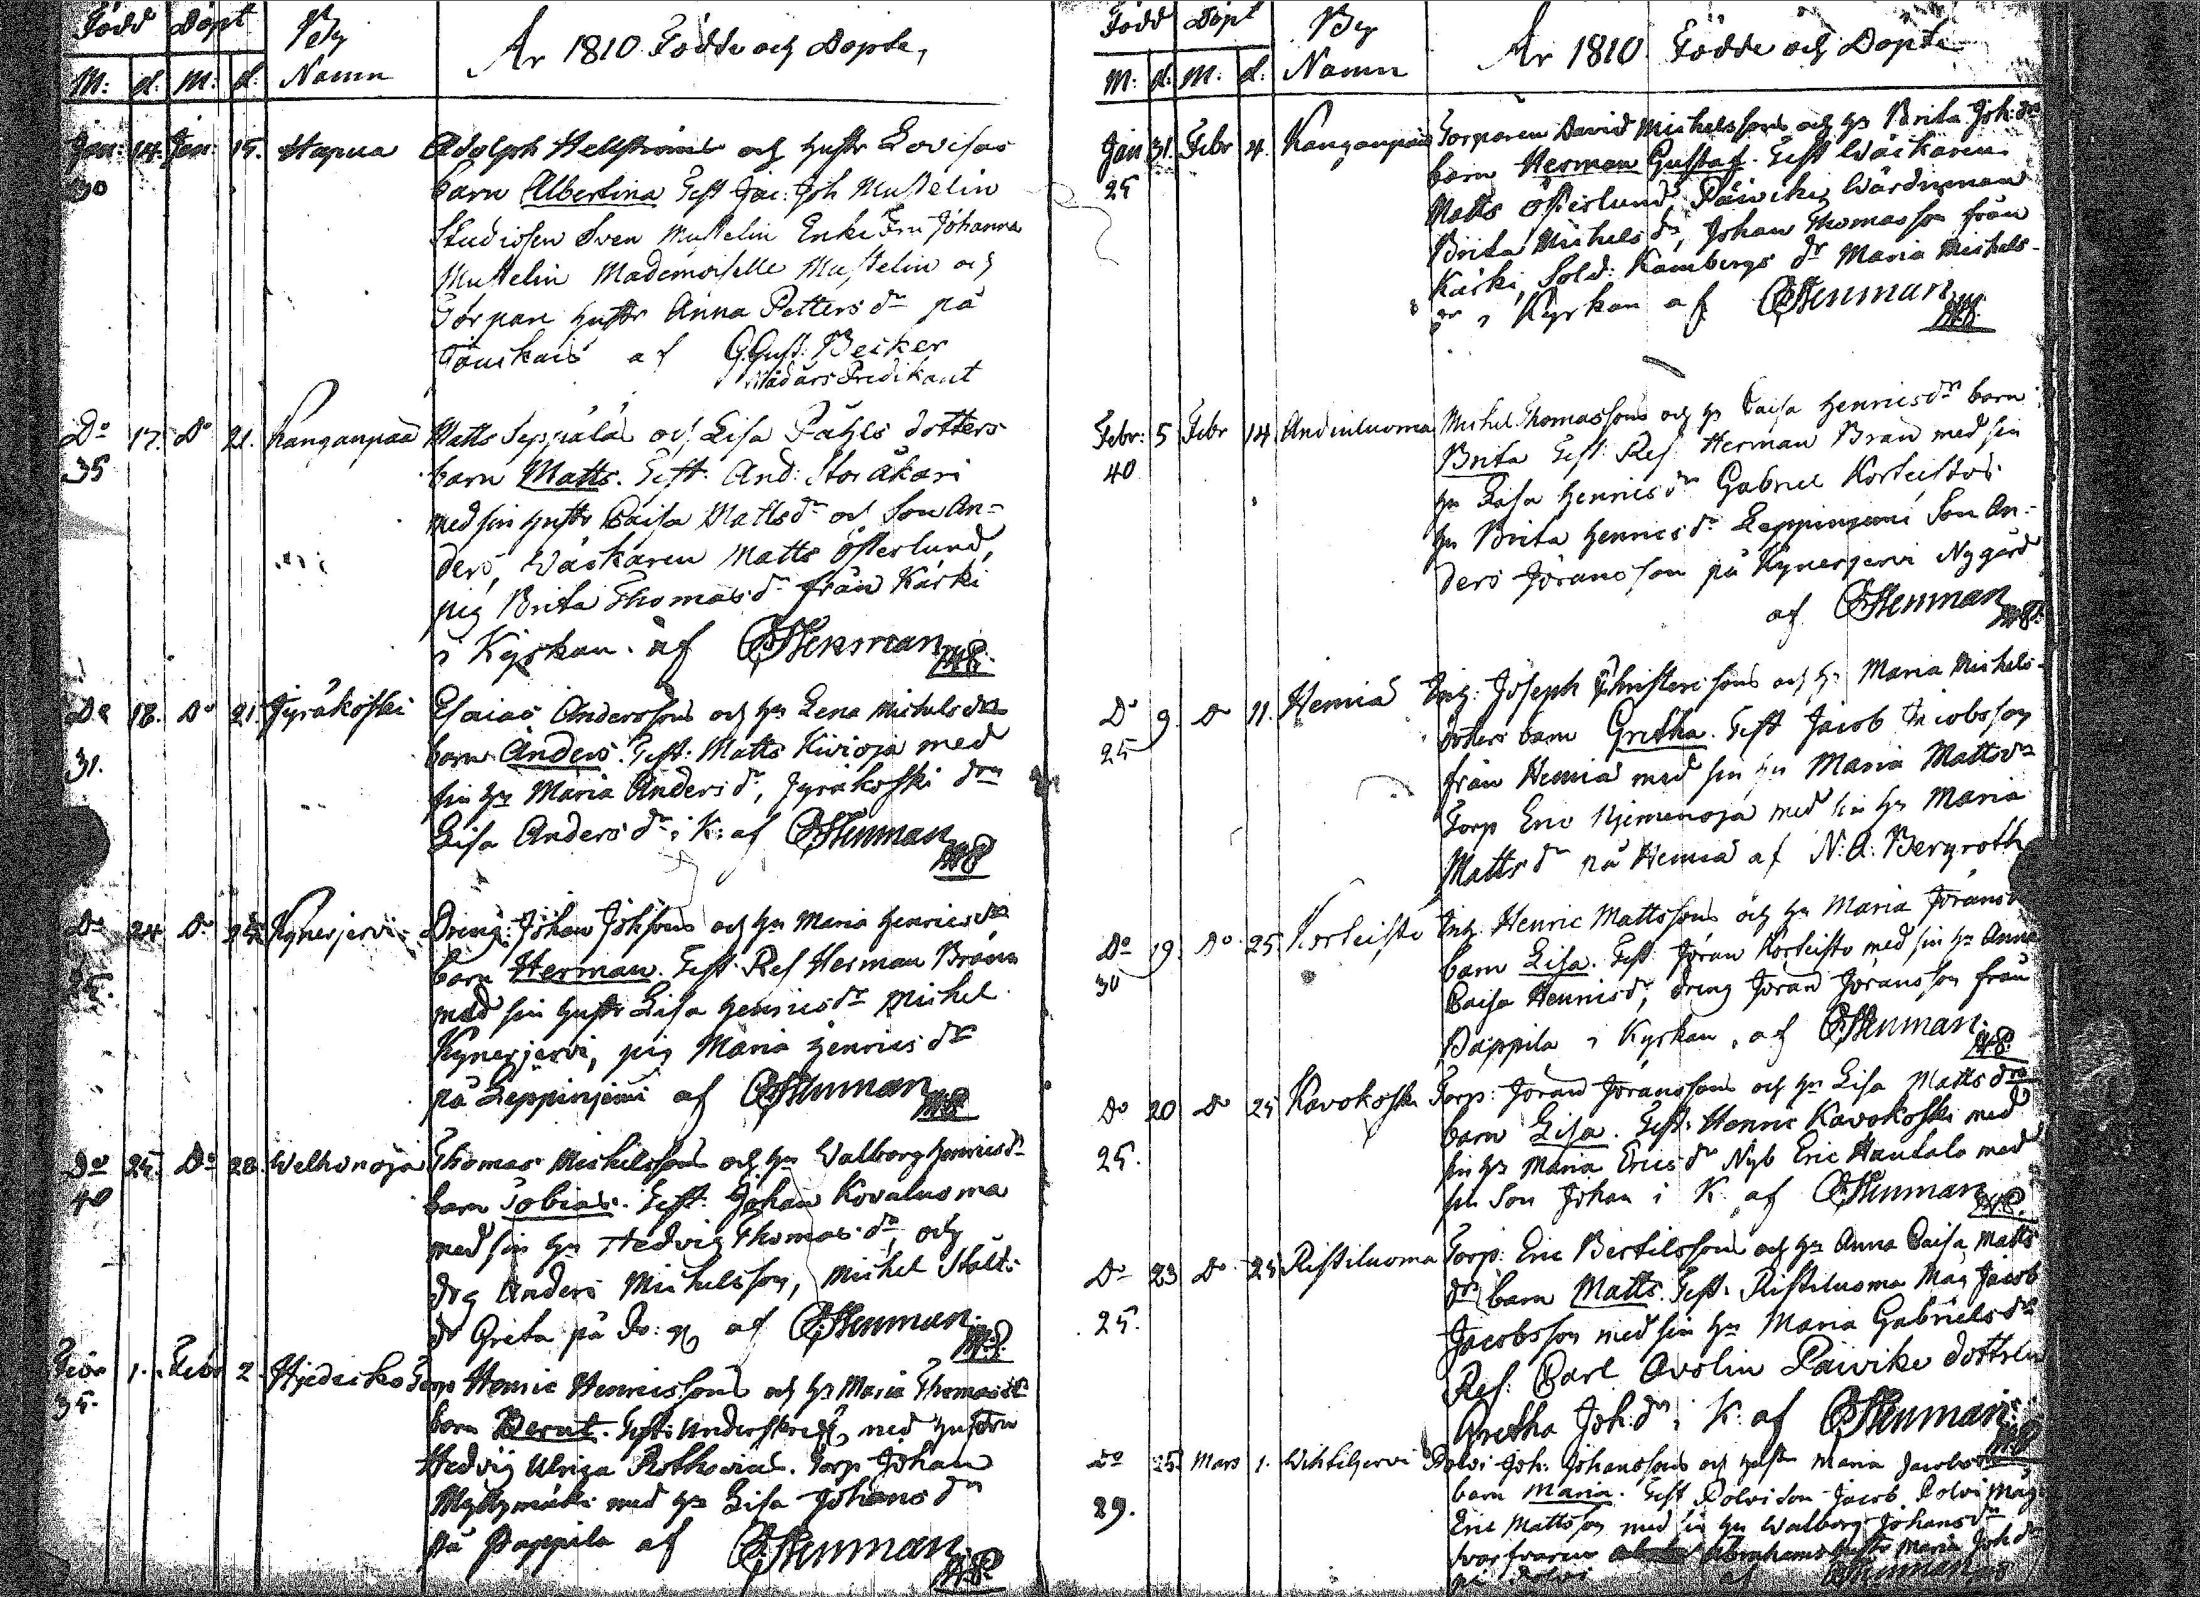 Född Döpt By
M: d. M: d: Namn
År 1810. Födde och Döpte,
Jan: 14. Jan: 15. Hapua Adolph Hellströms och hustr Lovisas
30 barn Albertina Test Jac: Joh Mustelin
Studiosen Sven Mustelin Enke Fru Johanna
Mustelin Mademoiselle Mustelin och
Torpare hustr Anna Petters dr på
af G. Gust: Becker
Nådårs Predikant
Do 17. Do 21. Kanganpää Matts Seppäläs och Lisa Påhls dotters
35 barn Matts. Test. And: Storåkari
med sin hustr Caisa Matts dr och Son An=
ders, Wäckaren Matts Österlund,
pig Brita Thomas dr från Kärki
i Kyrkan. af Stenman
Do 18. Do 21. Jyräkoski Esaias Anderssons och hu Lena Michels drs
31. barn Anders. Test. Matts Kivioja med
sin hu Maria Anders dr, Jyräkoski drn
Lisa Anders dr i K: af Stenman
Do 24 Do Kynesjervi Dreng: Johan Johssons och hu Maria Henrics drs
25. barn Herman. Test. Ref Herman Bran
med sin hustr Lisa Henrics dr Michel
Kynesjervi, pig Maria Henrics dr
på Leppinjemi af Stenman
Do 25. Do 28. Welhonoja Thomas Michelssons och hu Walborg Henrics dr
40 barn Tobias. Test. Johan Kovaluoma
med sin hu Hedvig Thomas dr, och
drg Anders Michelsson, Michel Stålt:
dr Greta på do: af Stenman
Febr 1. Febr 2. Torp Henric Henricssons och hu Maria Thomas dr
35. barn Bernt. Test: Underskref. med hustru
Hedvig Ulrica Rothovius. Torp Johan
Myllymäki med hu Lisa Johans dr
på Pappila af Stenman
Född Döpt By
M: d: M: d: Namn
År 1810. Födde och Döpte
Jan 31. Febr 4. Kanganpää Torparen David Michelssons och hu Brita Joh: drs
25 barn Herman Gustaf. Test Wäckaren
Matts Österlund, Päiwike Wärdinnan
Brita Michels dr, Johan Thomasson från
Kärki, Sold: Kambergs dr Maria Michels-
dr i Kyrkan af Stenman
Febr: 5 Febr 14 Michel Thomassons och hu Caisa Henrics drs barn
40 Brita Test: Ref Herman Bran med sin
hu Lisa Henrics dr Gabriel Korteistos
hu Brita Henrics dr Leppinjemi Son An-
ders Jöransson på Kynesjervi Nygård
af Stenman
Do 9. Do 11. Hemiä Inh: Joseph Christerssons och hu Maria Michels-
25 dotters barn Gretha. Test Jacob Jacobsson
från Hemiä med sin hu Maria Matts dr
Torp Eric med sin hu Maria
Matts dr på Hemiä af N. A: Bergroth
Do 19. Do 25 Korteisto Inh Henric Mattssons och hu Maria Jörans
30 barn Lisa. Test Jöran Korteisto med sin hu Anna
Caisa Henrics dr, dreng Jöran Jöransson från
Pappila i Kyrkan, af Stenman
Do 20 Do 25 Kavokoski Torp: Jöran Jöranssons och hu Lisa Matts drs
25. barn Lisa. Test. Henric Kavokoski med
sin hu Maria Erics dr Nyb Eric Hautala med
sin Son Johan i K. af Stenman
Do 23 Do 25 Ristiluoma Torp: Eric Bertilssons och hu Anna Caisa Matts
25. drs barn Matts. Test. Ristiluoma Måg Jacob
Jacobsson med sin hu Maria Gabriels dr
Ref: Carl Avolin Päivike dottren
Gretha Joh: dr i K. af Stenman
Do 25. Mars 1. Wihteljervi Polvi Joh: Johanssons och hustr Maria Jacobs
29. barn Maria. Test Polvi Son Jacob Polvi Måg
Eric Mattsson med sin hu Walborg Johans dr
Svarfvaren Abrahams hustr Maria Joh dr
af Stenman